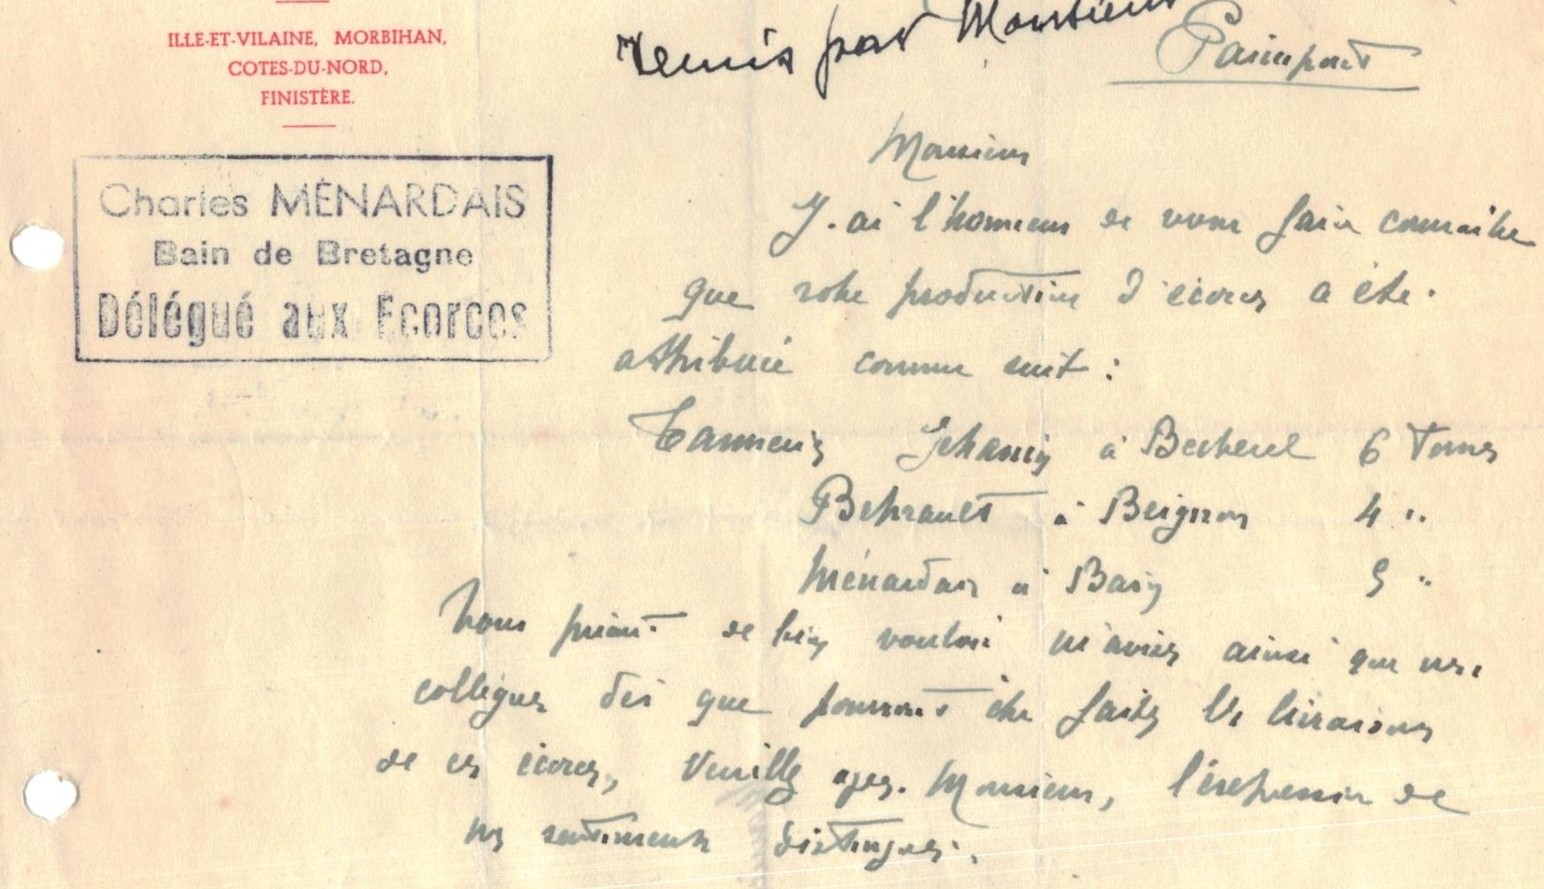 ILLE-ET-VILAINE, MORBIHAN,
COTES-DU-NORD,
FINISTÈRE.
Charles MÉNARDAIS
Bain de Bretagne
Délégué aux Ecorces
remis par Monsieur
Paimpont
Monsieur
J'ai l'honneur de vous faire connaitre
que votre production d'écorces a été
attribuée comme suit :
Tanneries à Becherel 6 Tonnes
à Beignon 4 "
Ménardais à Bain 5 "
Vous priant de bien vouloir m'aviser ainsi que mes
collègues dès que pourront être faites les livraisons
de ces écorces, Veuillez agréer Monsieur, l'expression de
mes sentiments distingués.